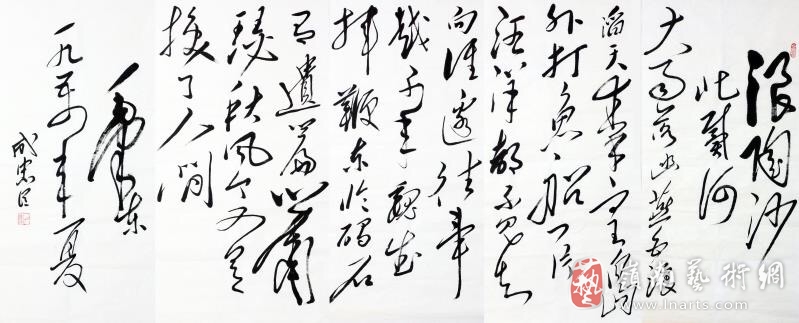 浪淘沙
北戴河
大雨落幽燕白浪
滔天秦皇岛
外打鱼船一片
汪洋都不见知
向谁边往事
越千年魏武
挥鞭东临碣石
有遺篇萧
瑟秋风今又是
换了人间
毛泽东
一九五四年夏
成忠臣
藝
嶺南藝術網
www.lnarts.com